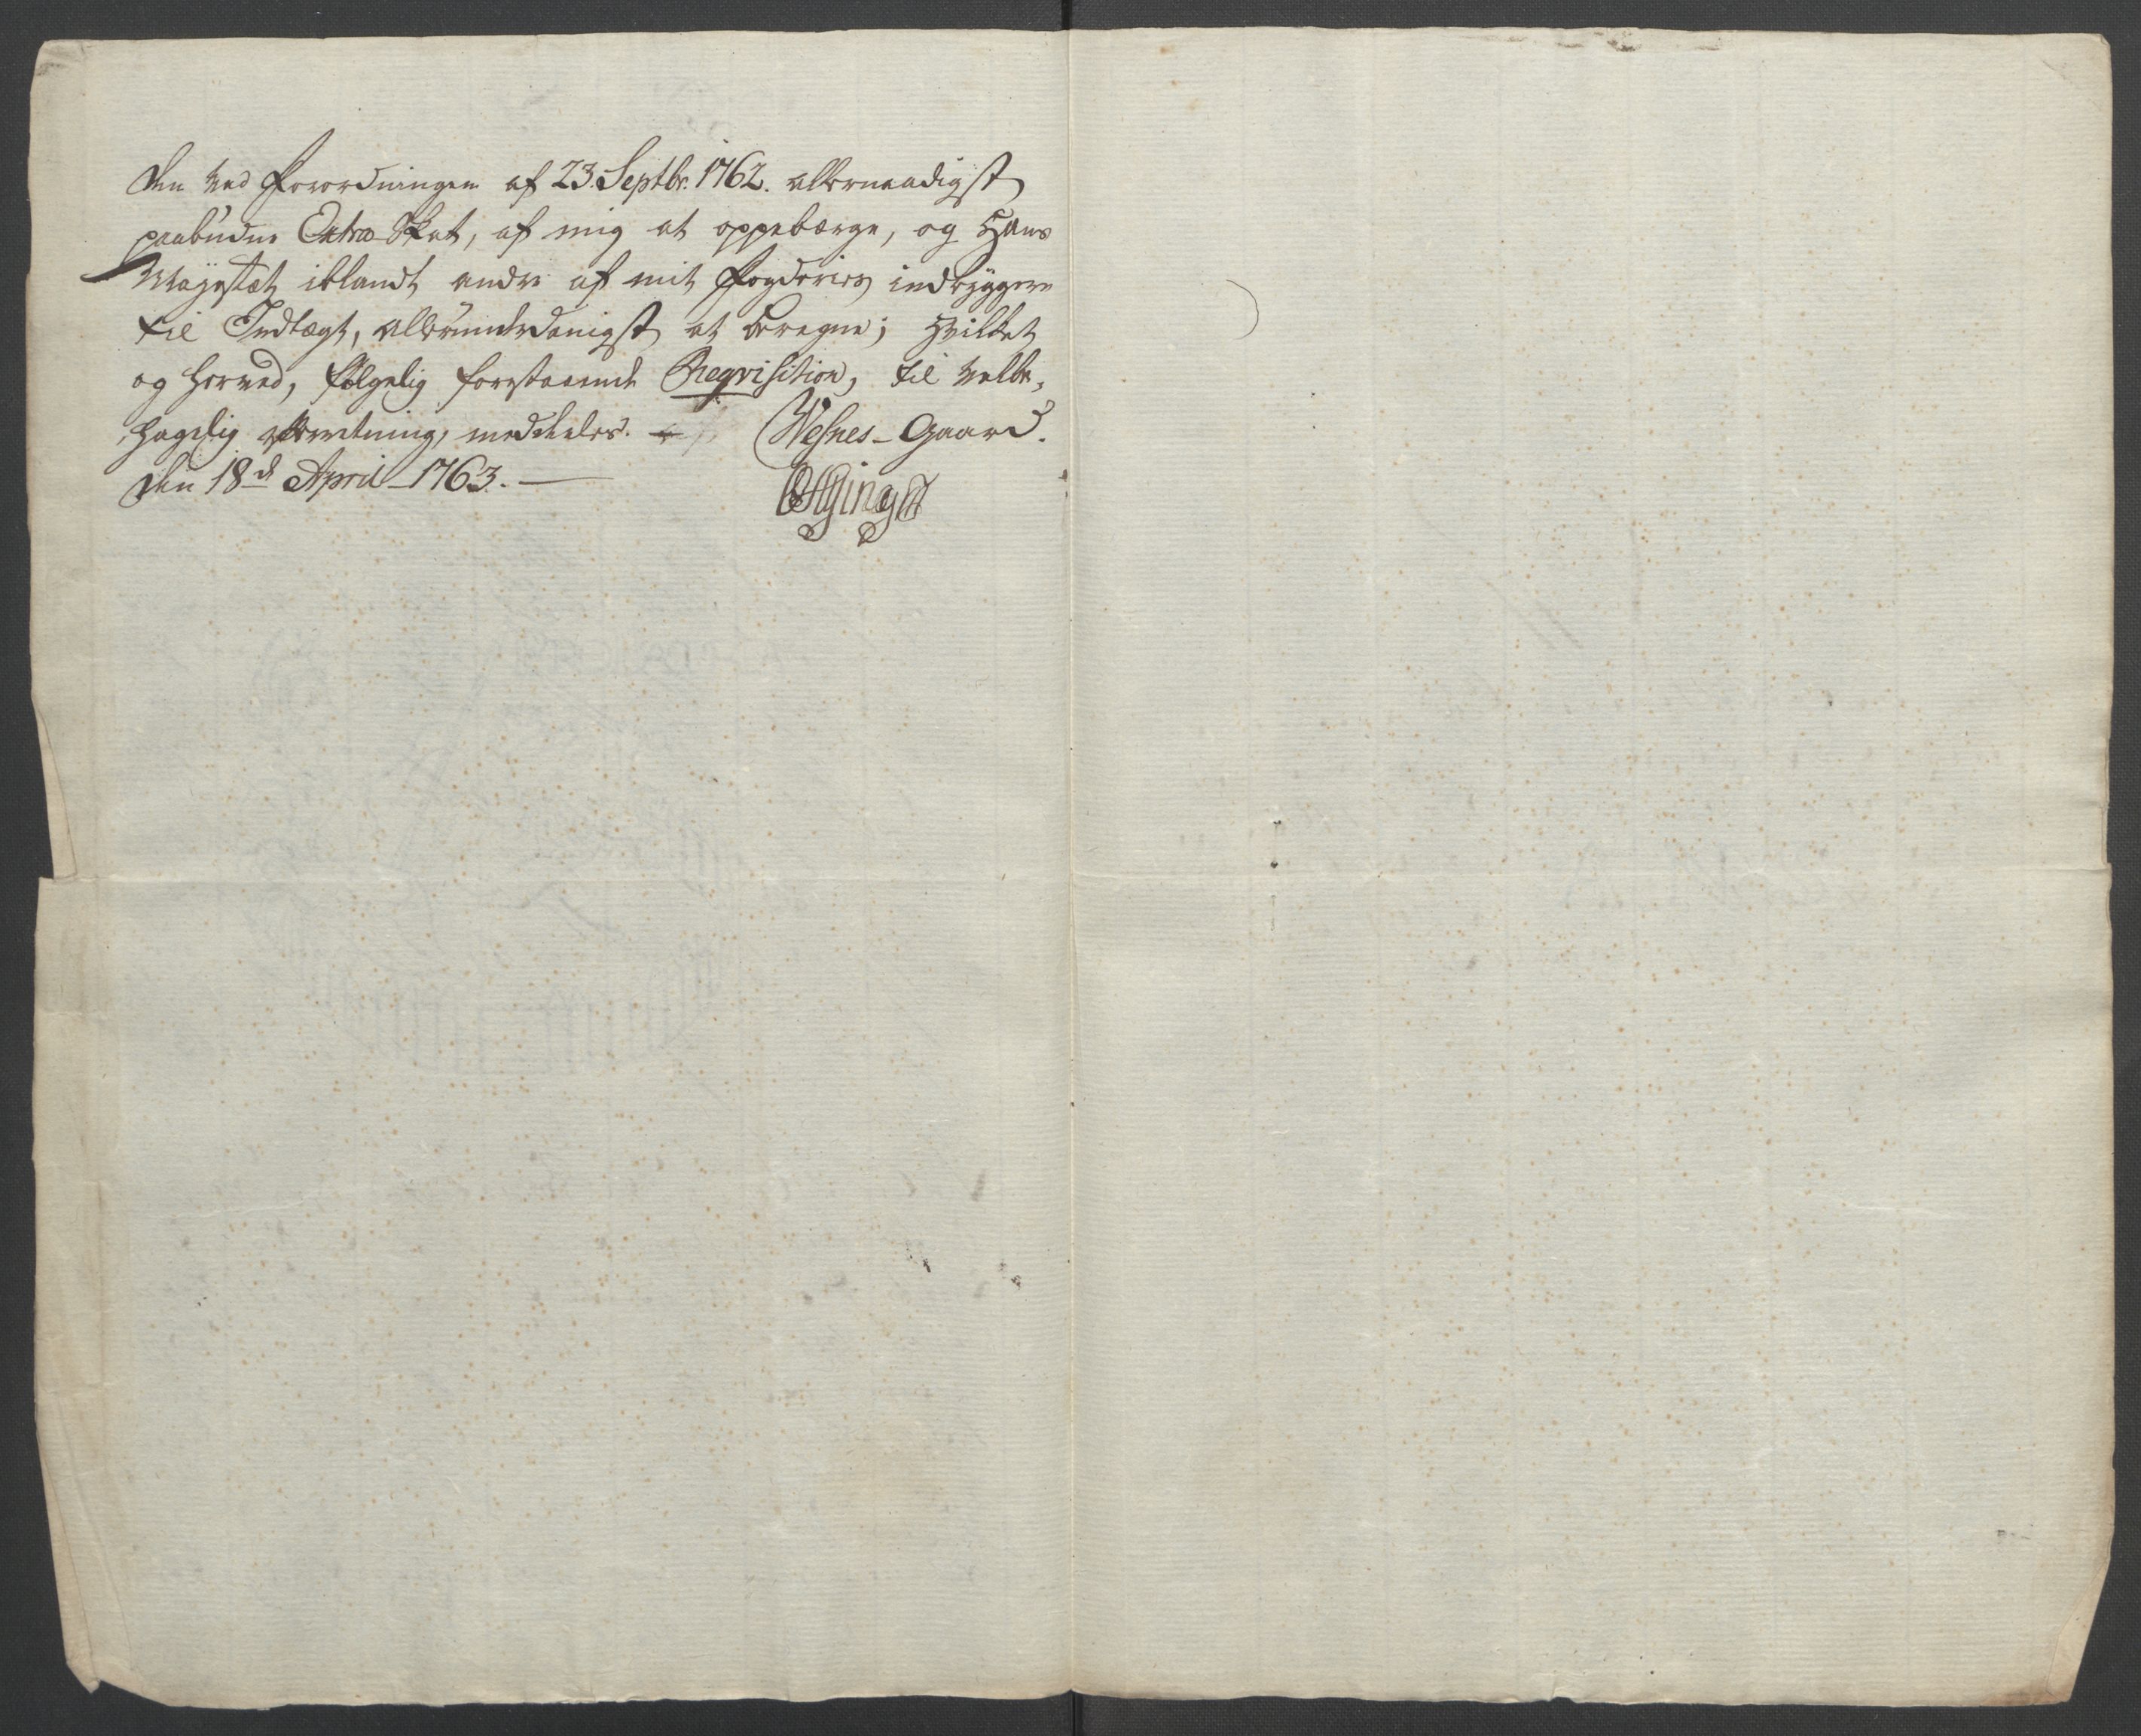 den ved Forordningen af 23. Septbr. 1762. allernaadigst
paabudne Extra-Skat, af mig at oppebærge, og Hans
Mayestæt iblandt andre af mit Fogderies indbyggere
til Indtægt, allerunderdanigst at beregne; hvilket
og herved, følgelig forestaaende Reqvisition, til velbe,
hagelig efterretning, meddeeles. Wesnes-Gaard.
den 18d April 1763.